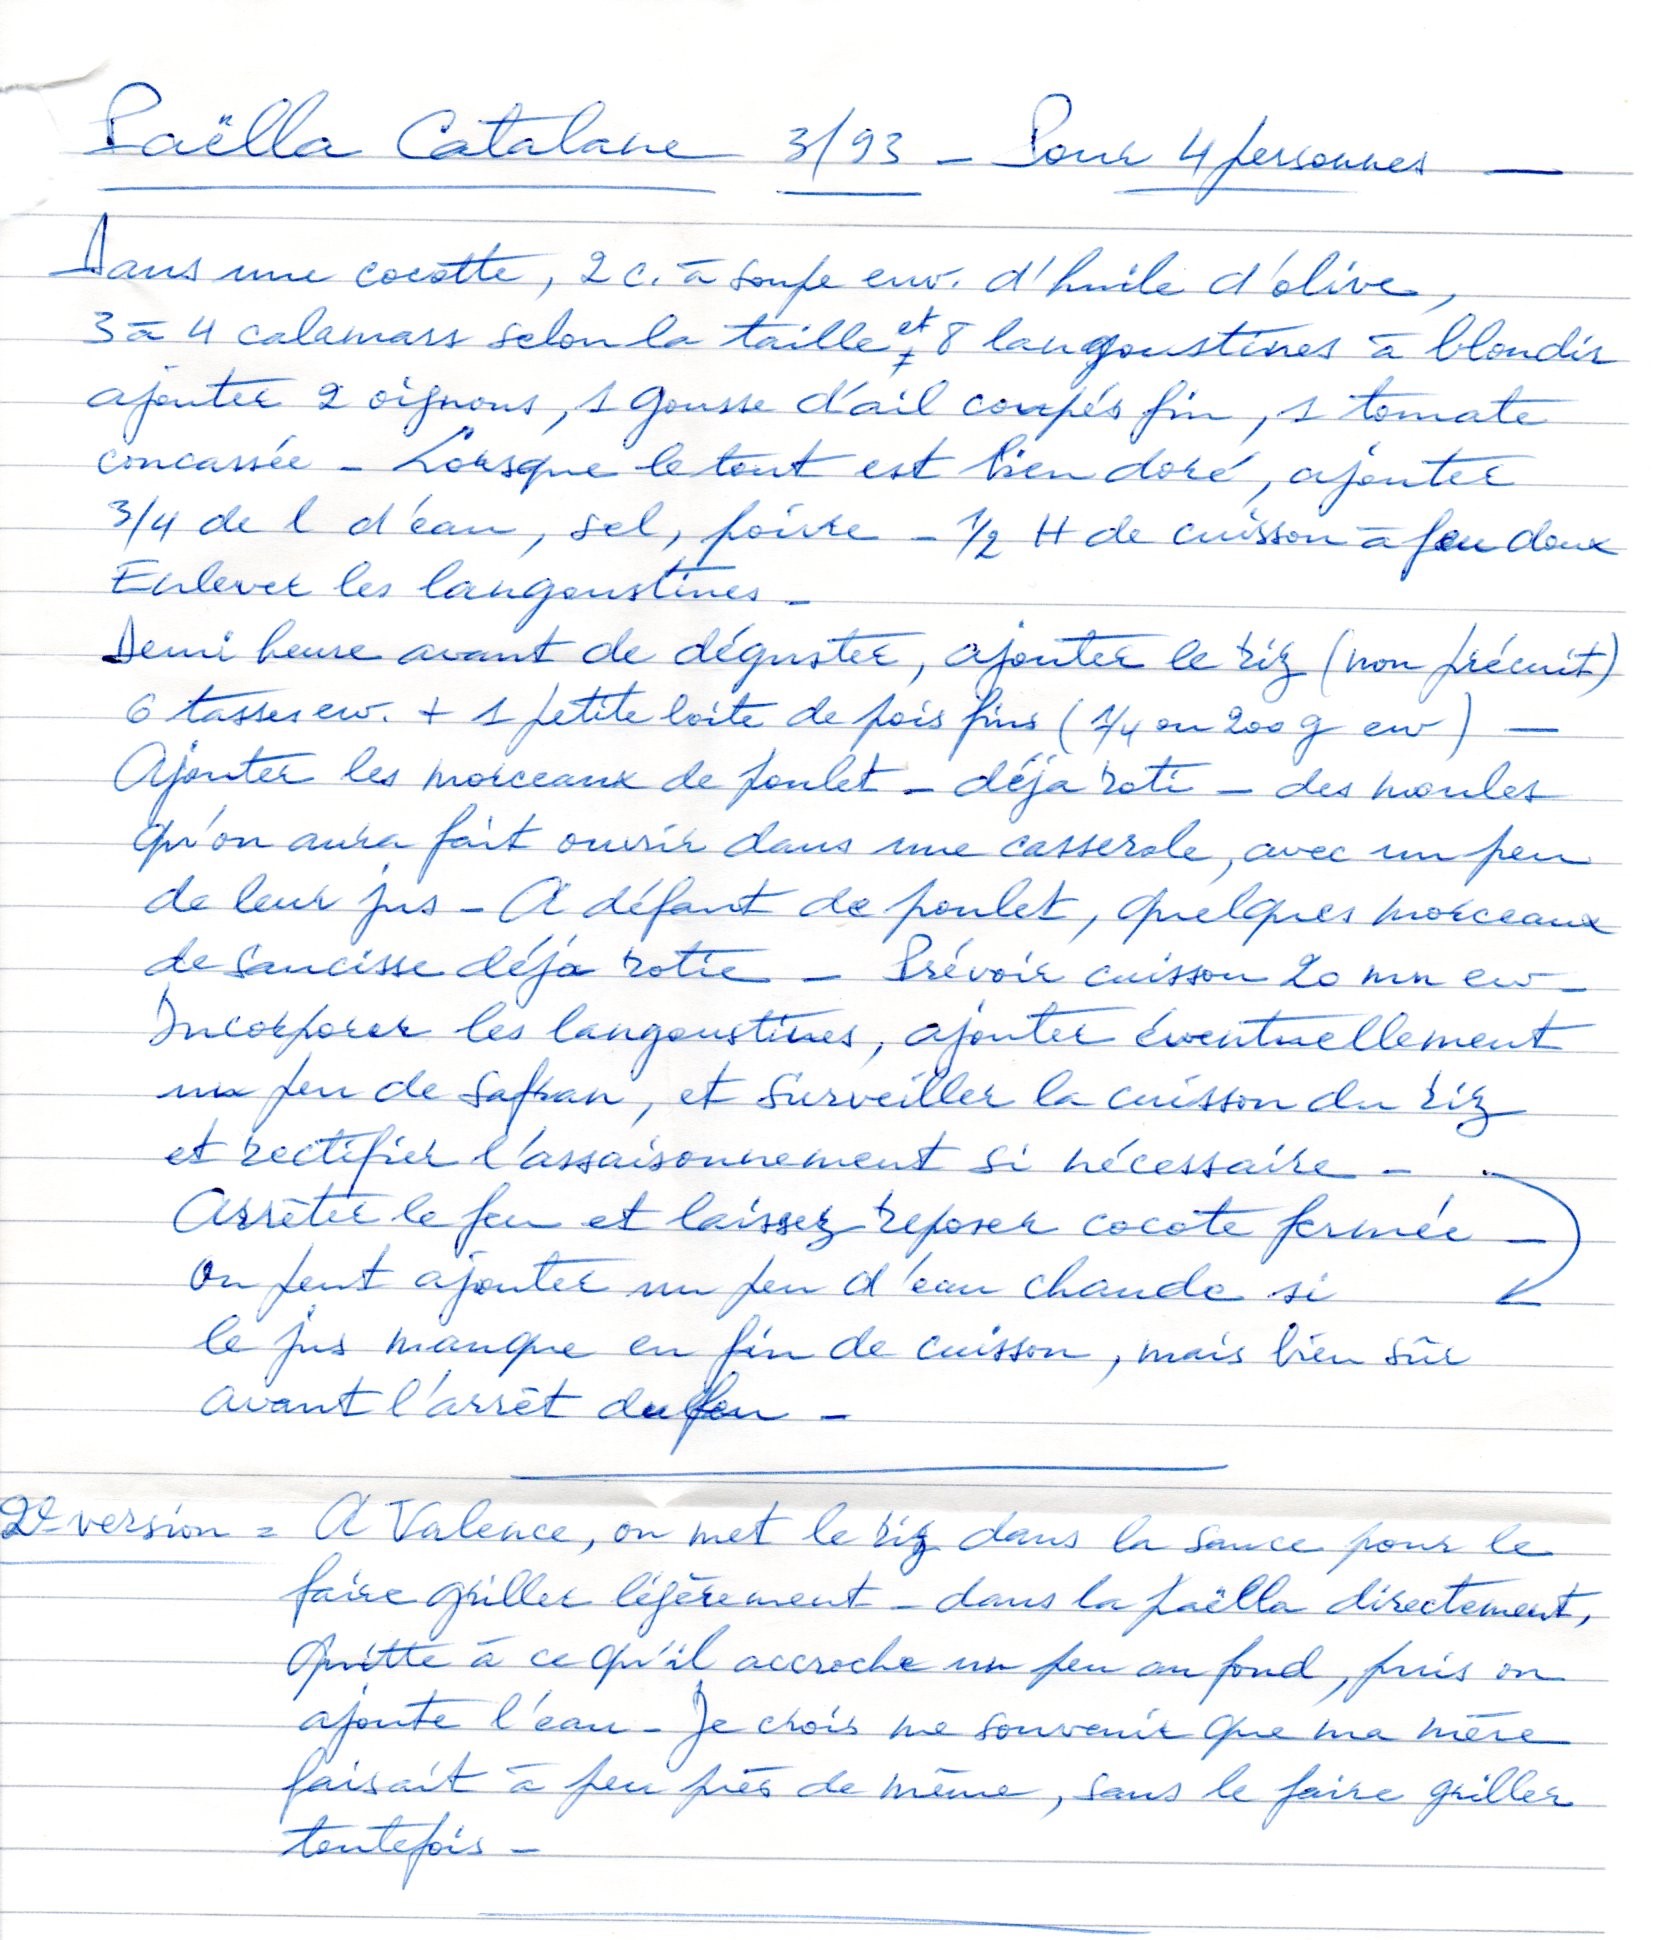 Paëlla Catalane 3/93 - Pour 4 personnes -
Dans une cocotte, 2 c. à soupe env. d'huile d'olive,
3 à 4 calamars selon la taille et 8 langoustines à blondir
ajouter 2 oignons, 1 gousse d'ail coupés fin, 1 tomate
concassée - Lorsque le tout est bien doré, ajouter
3/4 de l d'eau, sel, poivre - 1/2 H de cuisson à feu doux
Enlever les langoustines -
Demi heure avant de déguster, ajouter le riz (non précuit)
6 tasses env. + 1 petite boite de pois fins (1/4 ou 200 g env) -
Ajouter les morceaux de poulet - déja roti - des moules
qu'on aura fait ouvrir dans une casserole, avec un peu
de leur jus - A défaut de poulet, quelques morceaux
de saucisse déjà rotie - Prévoir cuisson 20 mn env -
Incorporer les langoustines, ajouter éventuellement
un peu de safran, et surveiller la cuisson du riz
et rectifier l'assaisonnement si nécessaire -
Arrêter le feu et laissez reposer cocote fermée -
On peut ajouter un peu d'eau chaude si
le jus manque en fin de cuisson, mais bien sûr
avant l'arrêt du feu -
2e version = A Valence, on met le riz dans la sauce pour le
faire griller légèrement - dans la paëlla directement,
quitte à ce qu'il accroche un peu au fond, puis on
ajoute l'eau - Je crois me souvenir que ma mère
faisait à peu près de même, sans le faire griller
toutefois -